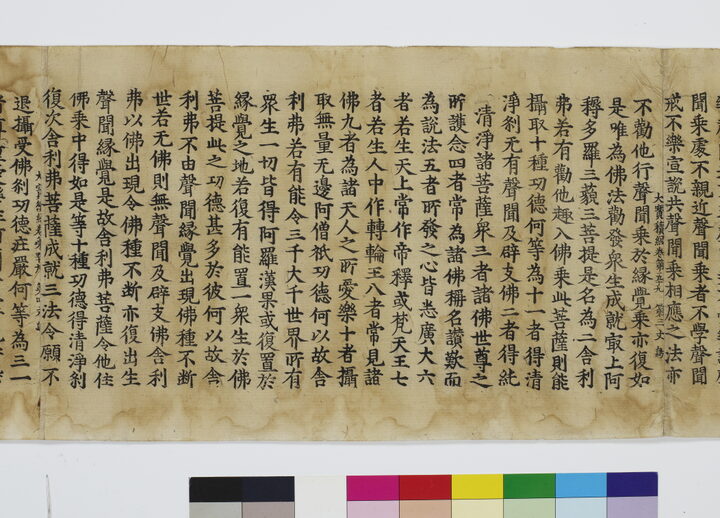 聞乘處不親近聲聞乘者不學聲聞
戒不樂宣說共聲聞乘相應之法亦
大寶積經卷第五十九 第二丈 為
不勸他行聲聞乘於緣覺乘亦復如
是唯為佛法勸發眾生成就㝡上阿
耨多羅三藐三菩提是名為二舍利
弗若有勸他趣入佛乘此菩薩則能
攝取十種㓛德何等為十一者得清
淨刹无有聲聞及辟支佛二者得純
清淨諸菩薩眾三者諸佛世尊之
所護念四者常為諸佛稱名讚歎而
為說法五者所發之心皆悉廣大六
者若生天上常作帝釋或梵天王七
者若生人中作轉輪王八者常見諸
佛九者為諸天人之所愛樂十者攝
取無量无邊阿僧祇㓛德何以故舍
利弗若有能令三千大千世界所有
眾生一切皆得阿羅漢果或復置於
緣覺之地若復有能置一眾生於佛
菩提此之㓛德甚多於彼何以故舍
利弗不由聲聞緣覺出現佛種不斷
世若无佛則無聲聞及辟支佛舍利
弗以佛出現令佛種不斷亦復出生
聲聞緣覺是故舍利弗菩薩令他住
佛乘中得如是等十種㓛德得清淨刹
復次舍利弗菩薩成就三法令願不
退攝受佛刹㓛德庄嚴何等為三一